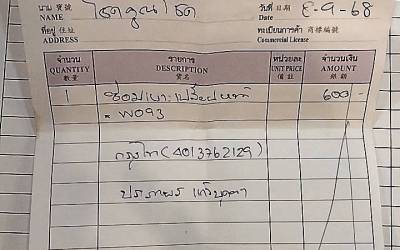 นาม 寶號
NAME
วันที่ 日期 8-9-68
Date
ที่อยู่ 住址
ADDRESS
ทะเบียนการค้า 商標編號
Commercial License
จำนวน รายการ หน่วยละ จำนวนเงิน
QUANTITY DESCRIPTION UNIT PRICE AMOUNT
數量 貨名 備註 銀額
1 ซ่อมเบาะ เปลี่ยนหนัง 600 -
W093
กรุงไทย (4013762129)
ประภาพร